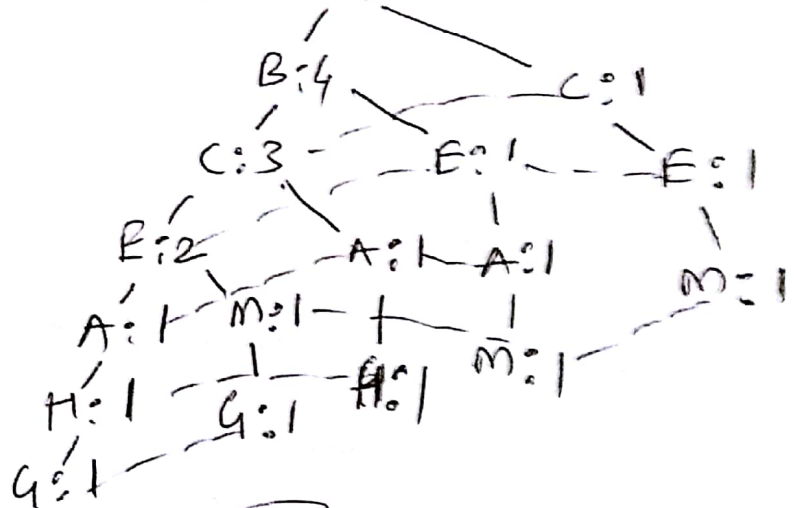 B:4 C:1
C:3 E:1 E:1
E:2 A:1 A:1 M:1
A:1 M:1 M:1
H:1 G:1 H:1
G:1